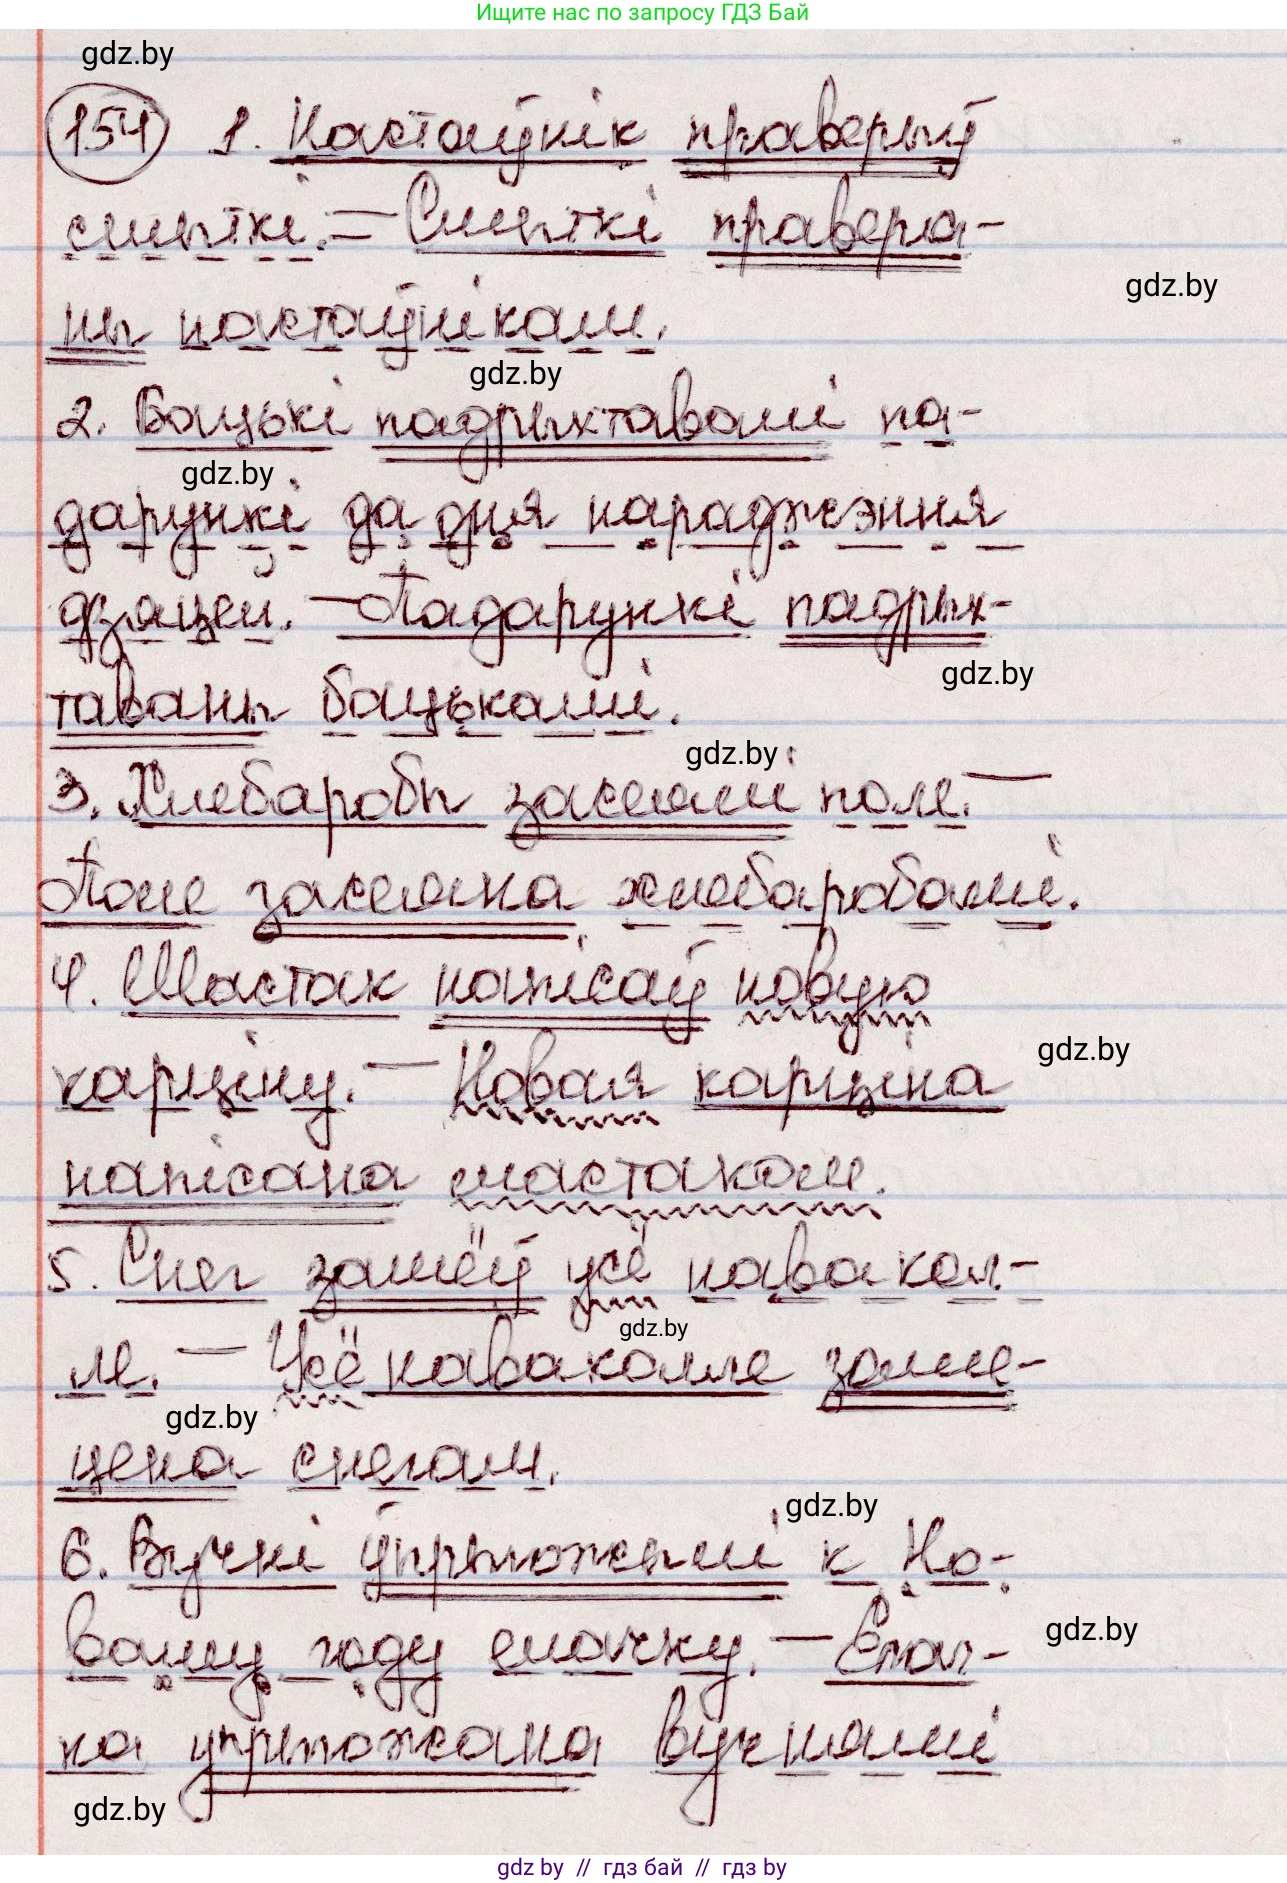 Ищите нас по запросу ГДЗ Бай
gdz.by
154 1. Настаўнік праверыў
сшыткі. – Сшыткі правера-
gdz.by
ны настаўнікам.
gdz.by
2. Бацькі падрыхтавалі па-
gdz.by
дарункі да дня нараджэння
дзяцей. – Падарункі падрых-
gdz.by
таваны бацькамі.
gdz.by
3. Хлебаробы засеялі поле. –
Поле засеяна хлебаробамі.
4. Мастак напісаў новую
gdz.by
карціну. – Новая карціна
напісана мастаком.
5. Снег замёў усё навакол-
gdz.by
ле. – Усё наваколле заме-
gdz.by
цена снегам.
gdz.by
6. Вучні ўпрыгожылі к Но-
gdz.by
ваму году ёлачку. – Ёлач-
ка упрыгожана вучнямі
gdz.by
gdz by // гдз бай // гдз by